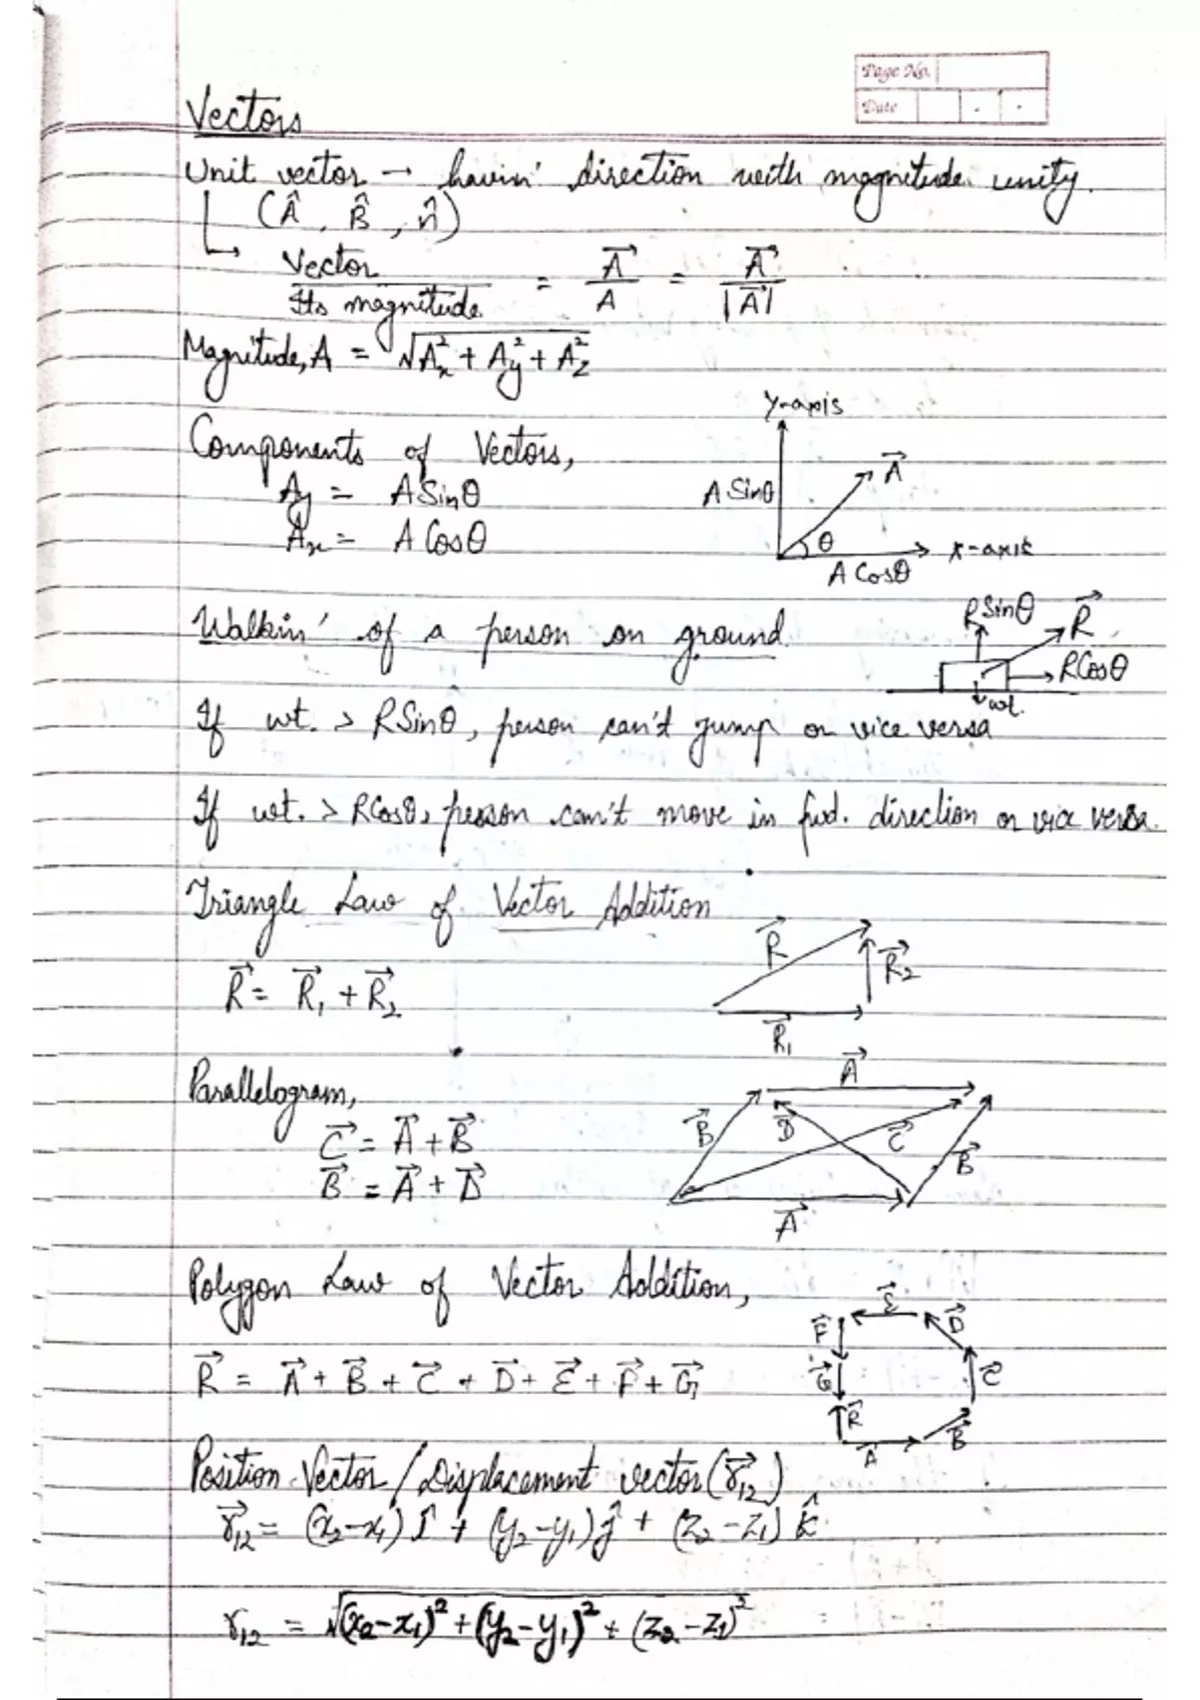 Page No.
Date
Vectors
Unit vector → havin' direction with magnitude unity.
(Â, B̂, n̂)
Vector / Its magnitude = A⃗ / A = A⃗ / |A⃗|
Magnitude, A = √(Ax² + Ay² + Az²)
Components of Vectors,
Ay = A Sinθ
Ax = A Cosθ
y-axis
A Sinθ
A⃗
θ
x-axis
A Cosθ
Walkin' of a person on ground
R Sinθ
R⃗
R Cosθ
wt.
If wt. > R Sinθ, person can't jump or vice versa
If wt. > R Cosθ, person can't move in fwd. direction or vice versa.
Triangle Law of Vector Addition
R⃗ = R⃗₁ + R⃗₂
R⃗
R⃗₂
R⃗₁
Parallelogram,
C⃗ = A⃗ + B⃗
B⃗ = A⃗ + D⃗
A⃗
B⃗
D⃗
C⃗
B⃗
A⃗
Polygon Law of Vector Addition,
R⃗ = A⃗ + B⃗ + C⃗ + D⃗ + E⃗ + F⃗ + G⃗
E⃗
D⃗
F⃗
G⃗
C⃗
R⃗
B⃗
A⃗
Position Vector / Displacement vector (r⃗₁₂)
r⃗₁₂ = (x₂-x₁) î + (y₂-y₁) ĵ + (z₂-z₁) k̂
r₁₂ = √((x₂-x₁)² + (y₂-y₁)² + (z₂-z₁)²)